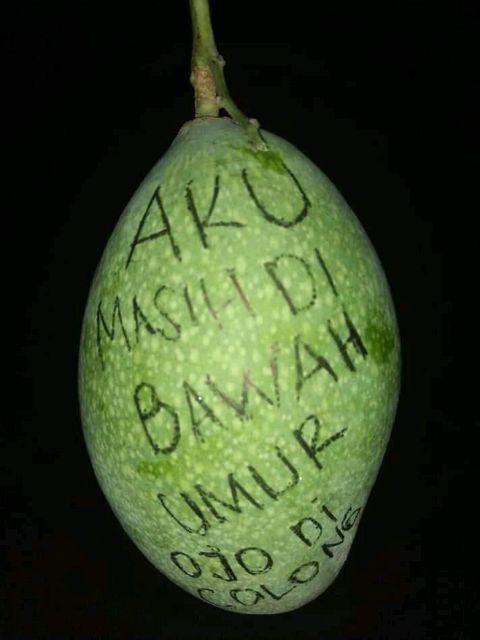 AKU
MASIH DI
BAWAH
UMUR
OJO DI
COLONG